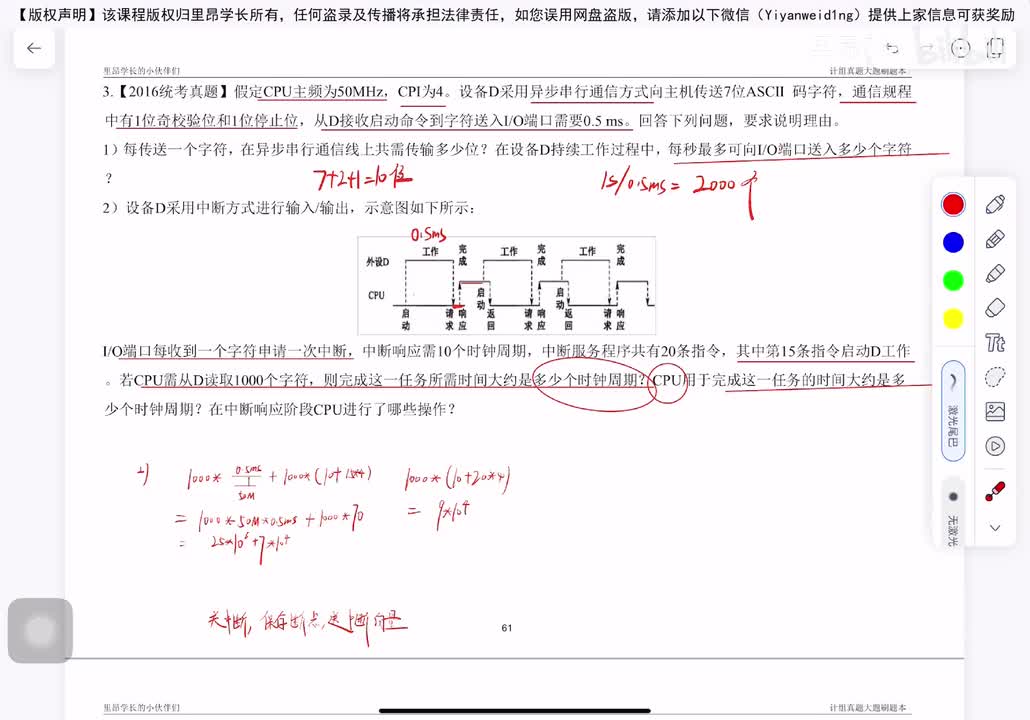 【版权声明】该课程版权归里昂学长所有，任何盗录及传播将承担法律责任，如您误用网盘盗版，请添加以下微信（Yiyanweid1ng）提供上家信息可获奖励
bilibili
里昂学长的小伙伴们 计组真题大题刷题本
3.【2016统考真题】假定CPU主频为50MHz，CPI为4。设备D采用异步串行通信方式向主机传送7位ASCII 码字符，通信规程
中有1位奇校验位和1位停止位，从D接收启动命令到字符送入I/O端口需要0.5 ms。回答下列问题，要求说明理由。
1）每传送一个字符，在异步串行通信线上共需传输多少位？在设备D持续工作过程中，每秒最多可向I/O端口送入多少个字符
？
7+2+1=10位 1s/0.5ms= 2000个
2）设备D采用中断方式进行输入/输出，示意图如下所示：
0.5ms
工作 完成 工作 完成 工作 完成
外设D
CPU
启动 请求 响应 启动 返回 请求 响应 启动 返回 请求 响应
I/O端口每收到一个字符申请一次中断，中断响应需10个时钟周期，中断服务程序共有20条指令，其中第15条指令启动D工作
。若CPU需从D读取1000个字符，则完成这一任务所需时间大约是多少个时钟周期？CPU用于完成这一任务的时间大约是多
少个时钟周期？在中断响应阶段CPU进行了哪些操作？
1000* 0.5ms/(1/50M) + 1000*(10+15*4) 1000*(10+20*4)
= 1000*50M*0.5ms + 1000*70 = 9*10⁴
= 25*10⁶+7*10⁴
关中断，保存断点，送中断向量
61
里昂学长的小伙伴们 计组真题大题刷题本
Tt
激光尾巴
无激光